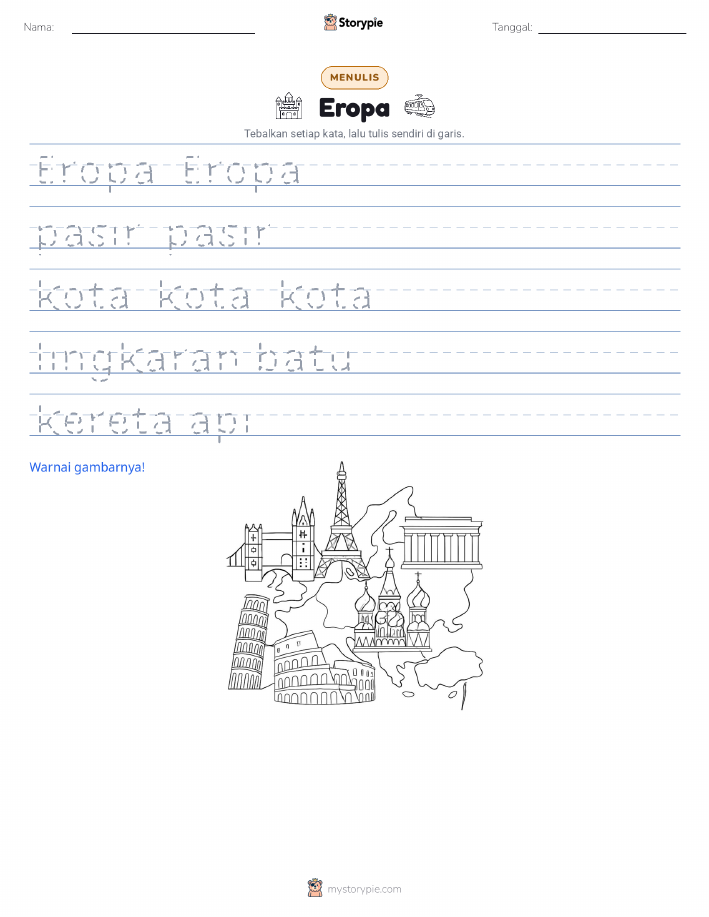 Nama:
Storypie
Tanggal:
MENULIS
Eropa
Tebalkan setiap kata, lalu tulis sendiri di garis.
Eropa Eropa
pasir pasir
kota kota kota
lingkaran batu
kereta api
Warnai gambarnya!
mystorypie.com